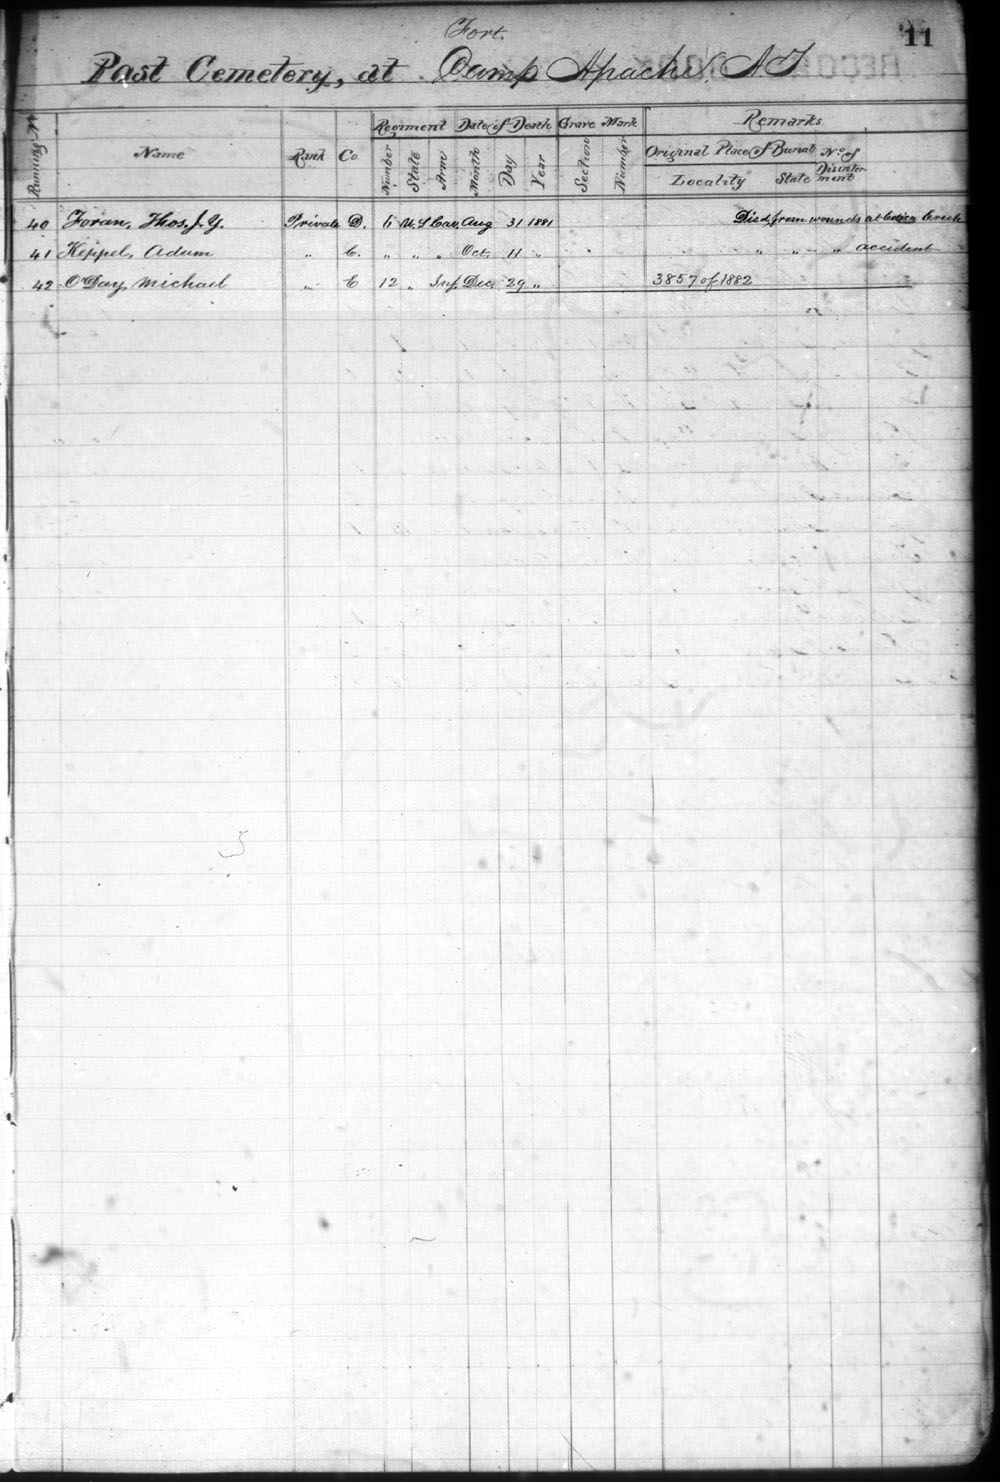 11
Fort
Post Cemetery, at Camp Apache, A.T.
Running No. Name Rank Co. Regiment Date of Death Grave Mark Remarks
Number State Arm Month Day Year Section Number Original Place of Burial No. of Disinterment
Locality State
40 Foran, Thos. J. Y. Private D. 6 U.S. Cav. Aug 31 1881 Died from wounds at Creek
41 Heppel, Adam " C. " " " Oct. 11 " " " " accident
42 O'Day, Michael " E 12 " Inf. Dec. 29 " 3857 of 1882